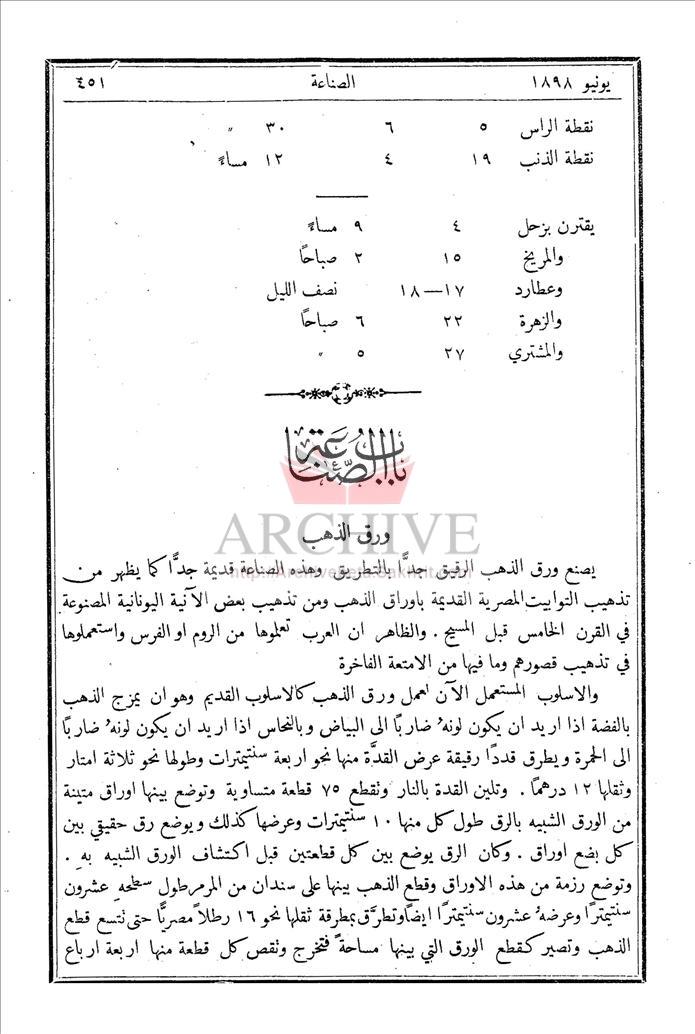 يونيو ١٨٩٨ الصناعة ٤٥١
نقطة الراس ٥ ٦ ٣٠ "
نقطة الذنب ١٩ ٤ ١٢ مساءً
يقترن بزحل ٤ ٩ مساءً
والمريخ ١٥ ٢ صباحًا
وعطارد ١٧—١٨ نصف الليل
والزهرة ٢٢ ٦ صباحًا
والمشتري ٢٧ ٥ "
باب الصناعة
ARCHIVE
ورق الذهب
يصنع ورق الذهب الرقيق جدًّا بالتطريق وهذه الصناعة قديمة جدًّا كما يظهر من
تذهيب التوابيت المصرية القديمة باوراق الذهب ومن تذهيب بعض الآنية اليونانية المصنوعة
في القرن الخامس قبل المسيح . والظاهر ان العرب تعلموها من الروم او الفرس واستعملوها
في تذهيب قصورهم وما فيها من الامتعة الفاخرة
والاسلوب المستعمل الآن لعمل ورق الذهب كالاسلوب القديم وهو ان يمزج الذهب
بالفضة اذا اريد ان يكون لونهُ ضاربًا الى البياض وبالنحاس اذا اريد ان يكون لونهُ ضاربًا
الى الحمرة ويطرق قددًا رقيقة عرض القدَّة منها نحو اربعة سنتيمترات وطولها نحو ثلاثة امتار
وثقلها ١٢ درهمًا . وتلين القدة بالنار وتقطع ٧٥ قطعة متساوية وتوضع بينها اوراق متينة
من الورق الشبيه بالرق طول كل منها ١٠ سنتيمترات وعرضها كذلك ويوضع رق حقيقي بين
كل بضع اوراق . وكان الرق يوضع بين كل قطعتين قبل اكتشاف الورق الشبيه بهِ .
وتوضع رزمة من هذه الاوراق وقطع الذهب بينها على سندان من المرمر طول سطحهِ عشرون
سنتيمترًا وعرضهُ عشرون سنتيمترًا ايضًا وتطرَّق بمطرقة ثقلها نحو ١٦ رطلاً مصريًّا حتى تتسع قطع
الذهب وتصير كقطع الورق التي بينها مساحةً فتخرج وتقص كل قطعة منها اربعة ارباع